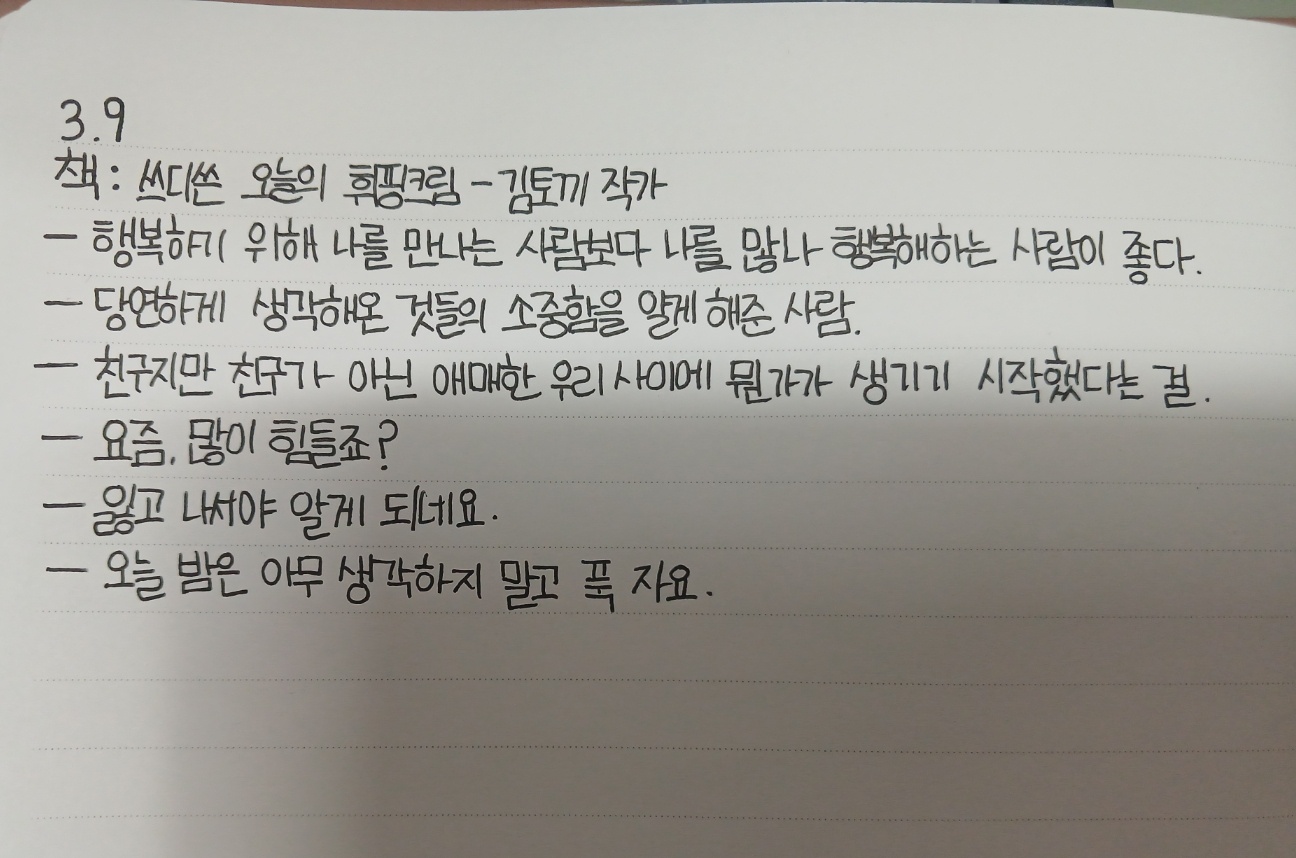 3.9
책 : 쓰디쓴 오늘의 휘핑크림 - 김토끼 작가
- 행복하기 위해 나를 만나는 사람보다 나를 많나 행복해하는 사람이 좋다.
- 당연하게 생각해온 것들의 소중함을 알게 해준 사람.
- 친구지만 친구가 아닌 애매한 우리 사이에 뭔가가 생기기 시작했다는 걸.
- 요즘, 많이 힘들죠?
- 잃고 나서야 알게 되네요.
- 오늘 밤은 아무 생각하지 말고 푹 자요.